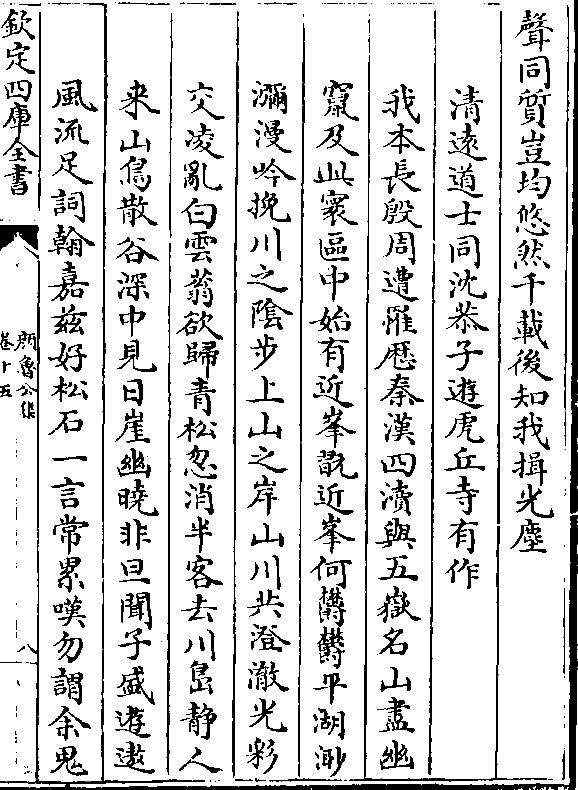 聲同質豈均悠然千載後知我揖光塵
清遠道士同沈恭子遊虎丘寺有作
我本長殷周遭罹歷秦漢四瀆與五嶽名山盡幽
竄及此寰區中始有近峯翫近峯何鬱鬱平湖渺
瀰漫吟挽川之陰步上山之岸山川共澄澈光彩
交凌亂白雲蓊欲歸青松忽消半客去川島静人
来山鳥散谷深中見日崖幽曉非旦聞子盛遊遨
風流足詞翰嘉兹好松石一言常累嘆勿謂余鬼
欽定四庫全書
顔魯公集
卷十五
八